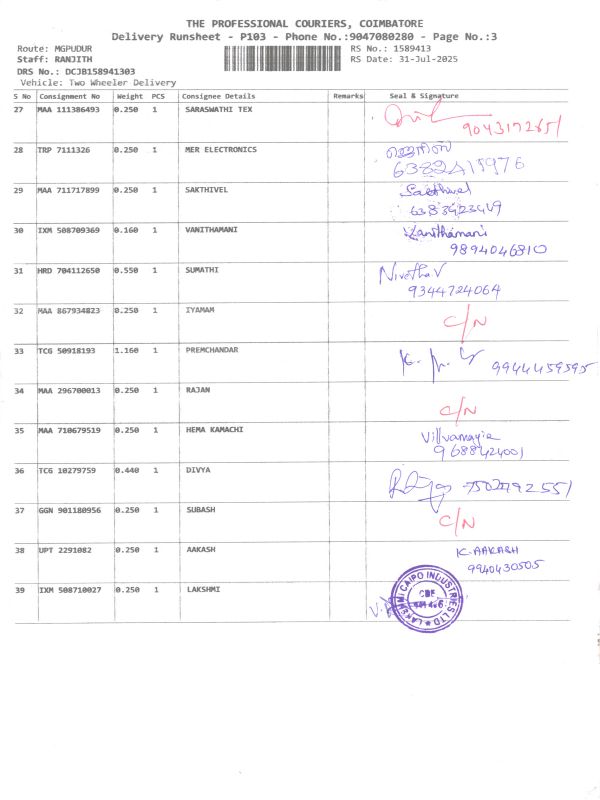 THE PROFESSIONAL COURIERS, COIMBATORE
Delivery Runsheet - P103 - Phone No.:9047080280 - Page No.:3
Route: MGPUDUR RS No.: 1589413
Staff: RANJITH RS Date: 31-Jul-2025
DRS No.: DCJB158941303
Vehicle: Two Wheeler Delivery
S No Consignment No Weight PCS Consignee Details Remarks Seal & Signature
27 MAA 111386493 0.250 1 SARASWATHI TEX
28 TRP 7111326 0.250 1 MER ELECTRONICS
29 MAA 711717899 0.250 1 SAKTHIVEL Sakthivel
30 IXM 508709369 0.160 1 VANITHAMANI Vanithamani
9894046810
31 HRD 704112650 0.550 1 SUMATHI Nivetha V
9344724064
32 MAA 867934823 0.250 1 IYAMAM C/N
33 TCG 50918193 1.160 1 PREMCHANDAR
9944459595
34 MAA 296700013 0.250 1 RAJAN C/N
35 MAA 710679519 0.250 1 HEMA KAMACHI
9688424001
36 TCG 10279759 0.440 1 DIVYA
37 GGN 901180956 0.250 1 SUBASH C/N
38 UPT 2291082 0.250 1 AAKASH K. AAKASH
9940430505
39 IXM 508710027 0.250 1 LAKSHMI
CAIPO INDUSTRIES LTD
CBE